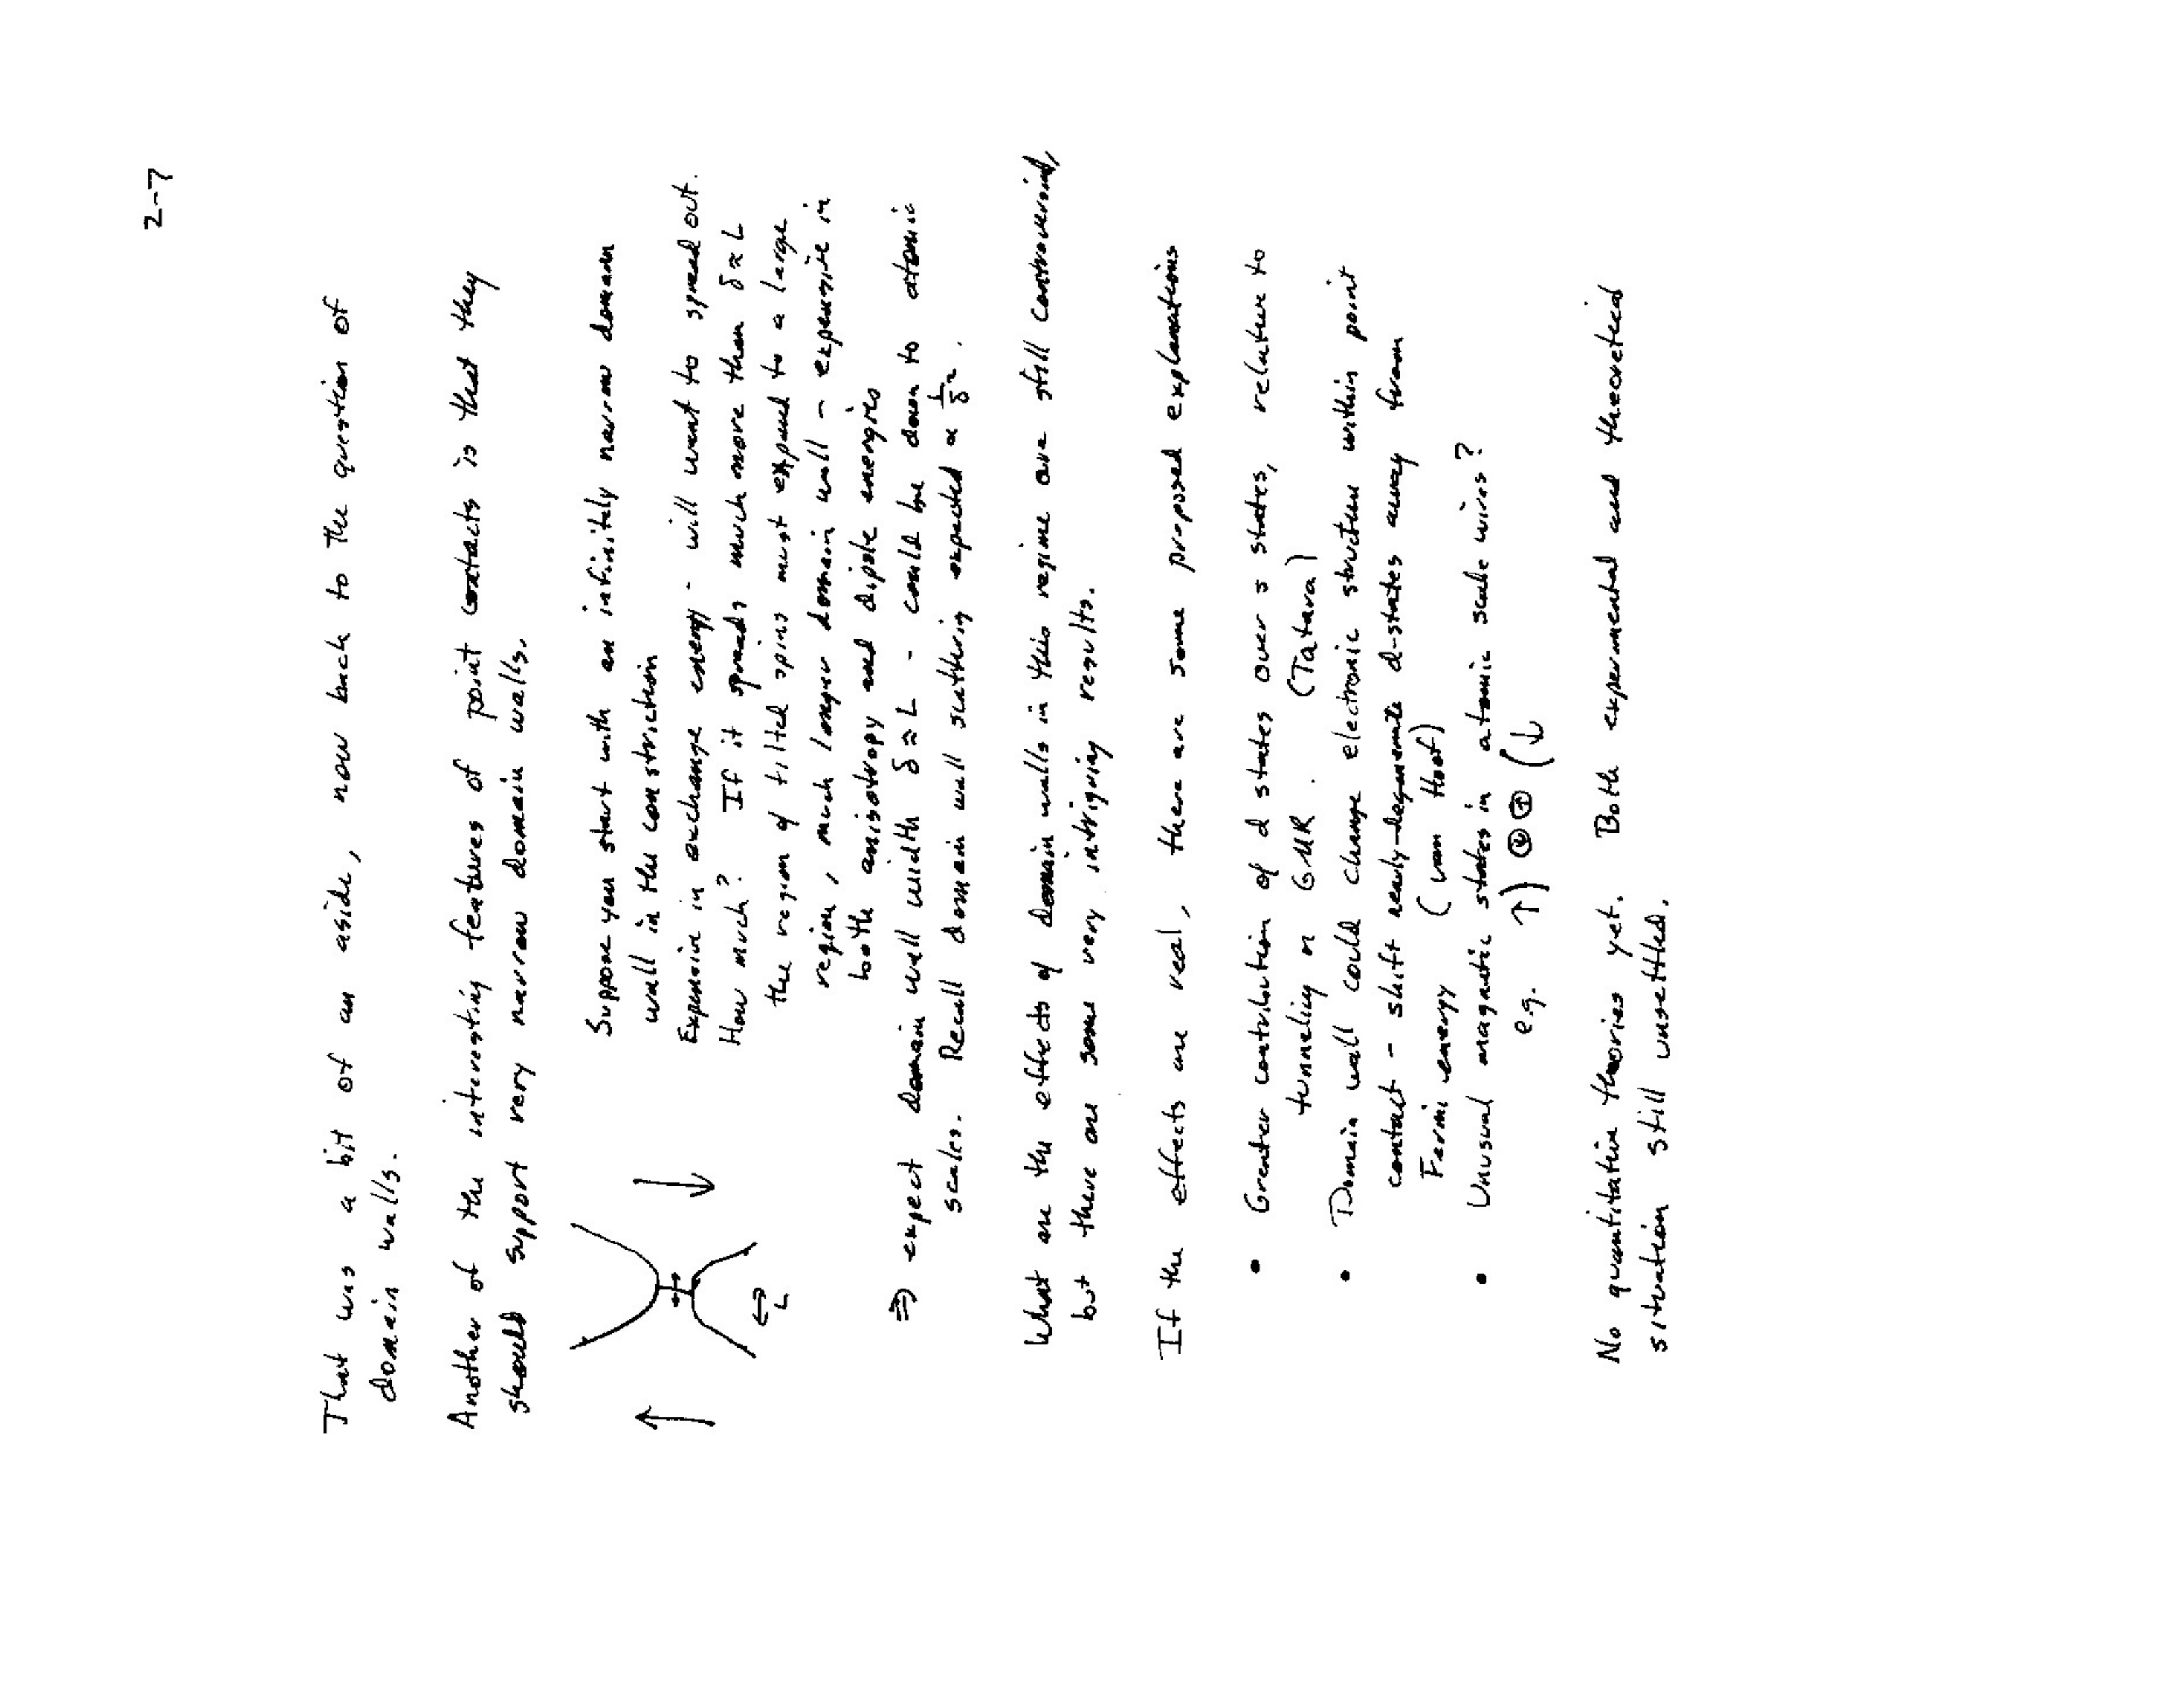 2-7
That was a bit of an aside, now back to the question of
domain walls.
Another of the interesting features of point contacts is that they
should support very narrow domain walls.
Suppose you start with an infinitely narrow domain
wall in the constriction
Expensive in exchange energy - will want to spread out.
How much? If it spreads much more than δ≈L
the region of tilted spins must expand to a large
region, much longer domain wall - expensive in
both anisotropy and dipole energies
L
⇒ expect domain wall width δ≈L - could be down to atomic
scales. Recall domain wall scattering expected ∝ 1/δ².
What are the effects of domain walls in this regime are still controversial,
but there are some very intriguing results.
If the effects are real, there are some proposed explanations
• Greater contribution of d states over s states, relative to
tunneling or GMR. (Tatara)
• Domain wall could change electronic structure within point
contact - shift nearly-degenerate d-states away from
Fermi energy (van Hoof)
• Unusual magnetic states in atomic scale wires?
e.g. ↑) (↓
No quantitative theories yet. Both experimental and theoretical
situation still unsettled.